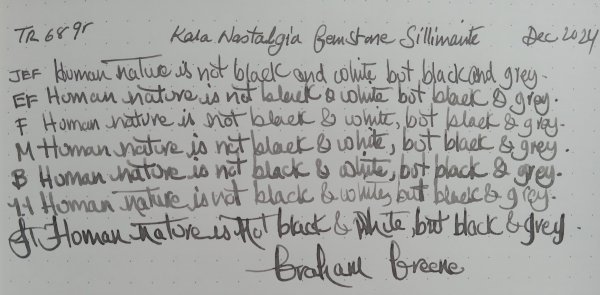 TR 68 gr Kala Nostalgia Gemstone Sillimanite Dec 2024
JEF Human nature is not black and white but black and grey.
EF Human nature is not black & white but black & grey.
F Human nature is not black & white, but black & grey.
M Human nature is not black & white, but black & grey.
B Human nature is not black & white, but black & grey.
1.1 Human nature is not black & white, but black & grey.
Human nature is not black & white, but black & grey.
Graham Greene